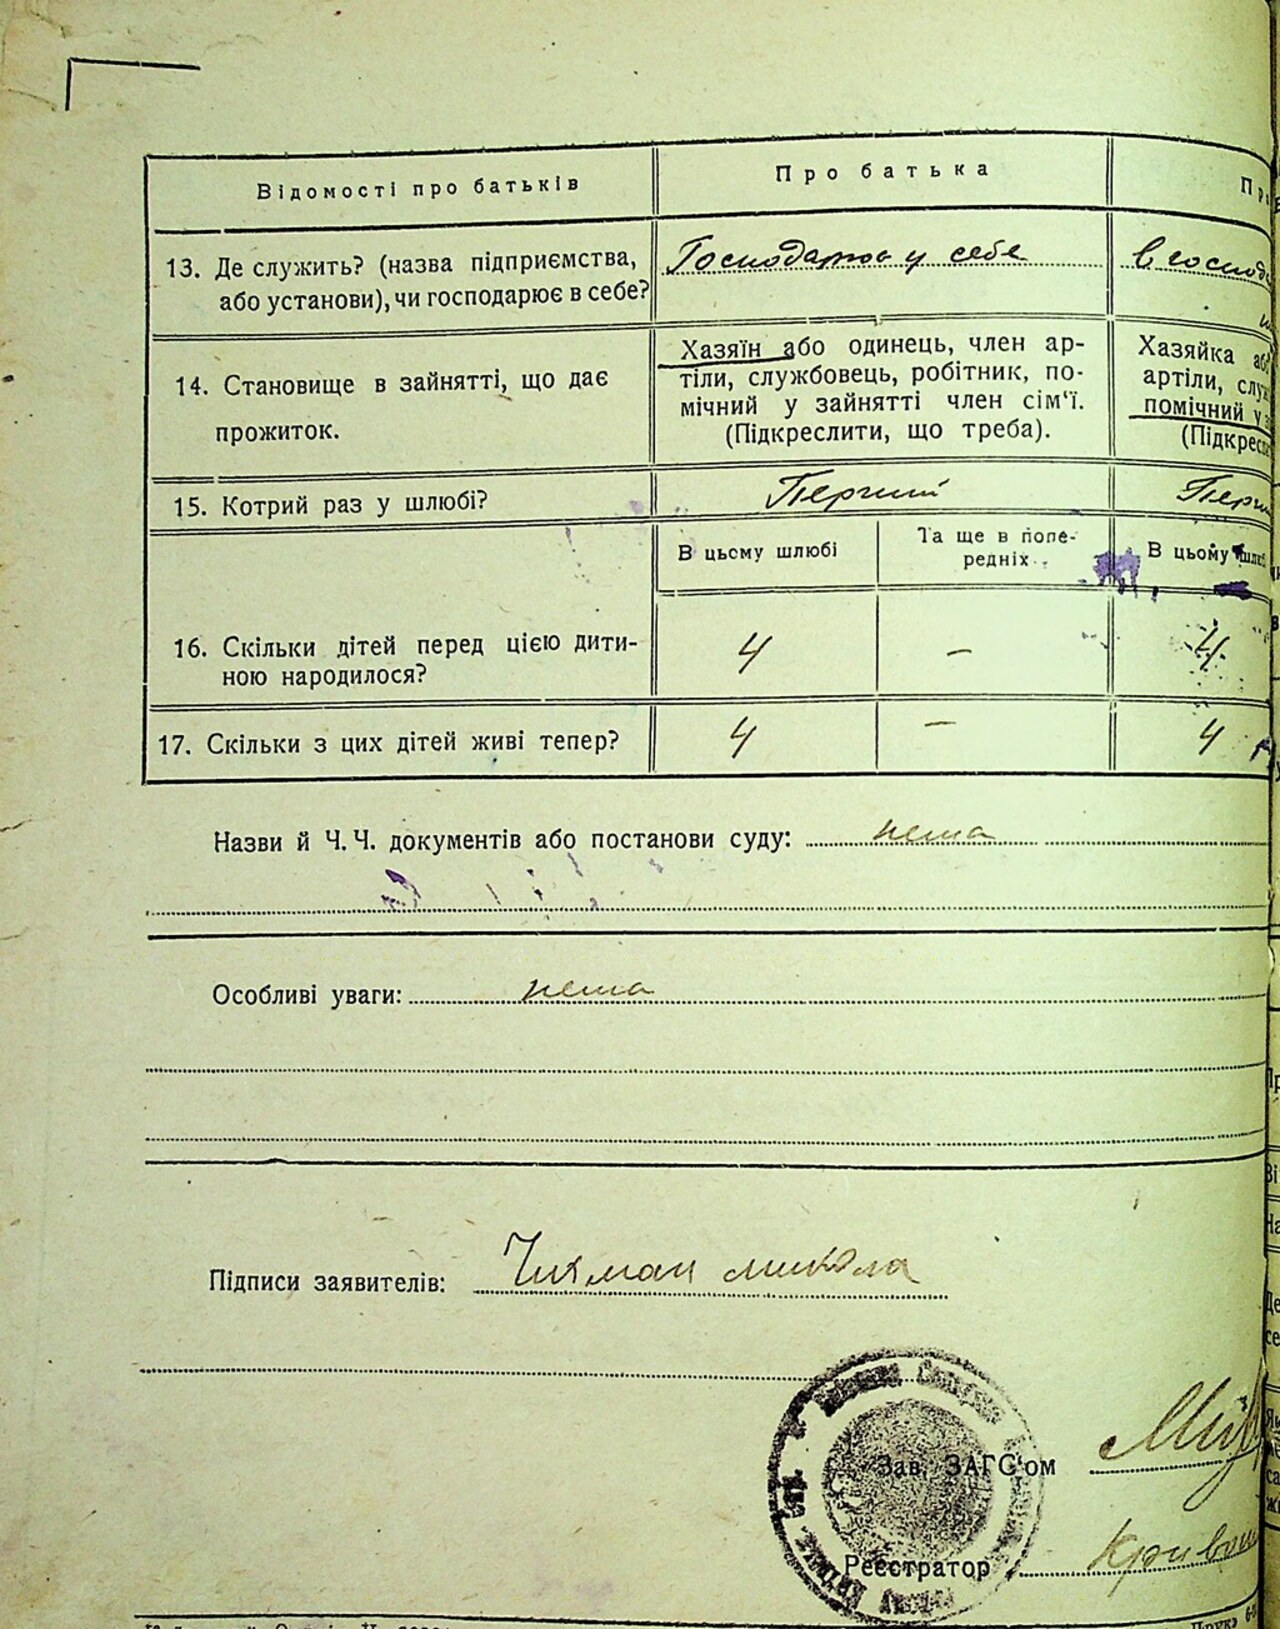 Відомості про батьків
Про батька
13. Де служить? (назва підприємства,
або установи), чи господарює в себе?
Господарює у себе
в господ
14. Становище в зайнятті, що дає
прожиток.
Хазяїн або одинець, член ар-
тіли, службовець, робітник, по-
мічний у зайнятті член сім'ї.
(Підкреслити, що треба).
Хазяйка або
артіли, служ
помічний у з
(Підкресл
15. Котрий раз у шлюбі?
Перший
Перш
В цьому шлюбі
Та ще в попе-
редніх
В цьому шлюбі
16. Скільки дітей перед цією дити-
ною народилося?
4
—
4
17. Скільки з цих дітей живі тепер?
4
—
4
Назви й Ч.Ч. документів або постанови суду: нема
Особливі уваги: нема
Підписи заявителів: Чихман микола
Зав. ЗАГС'ом
Реєстратор